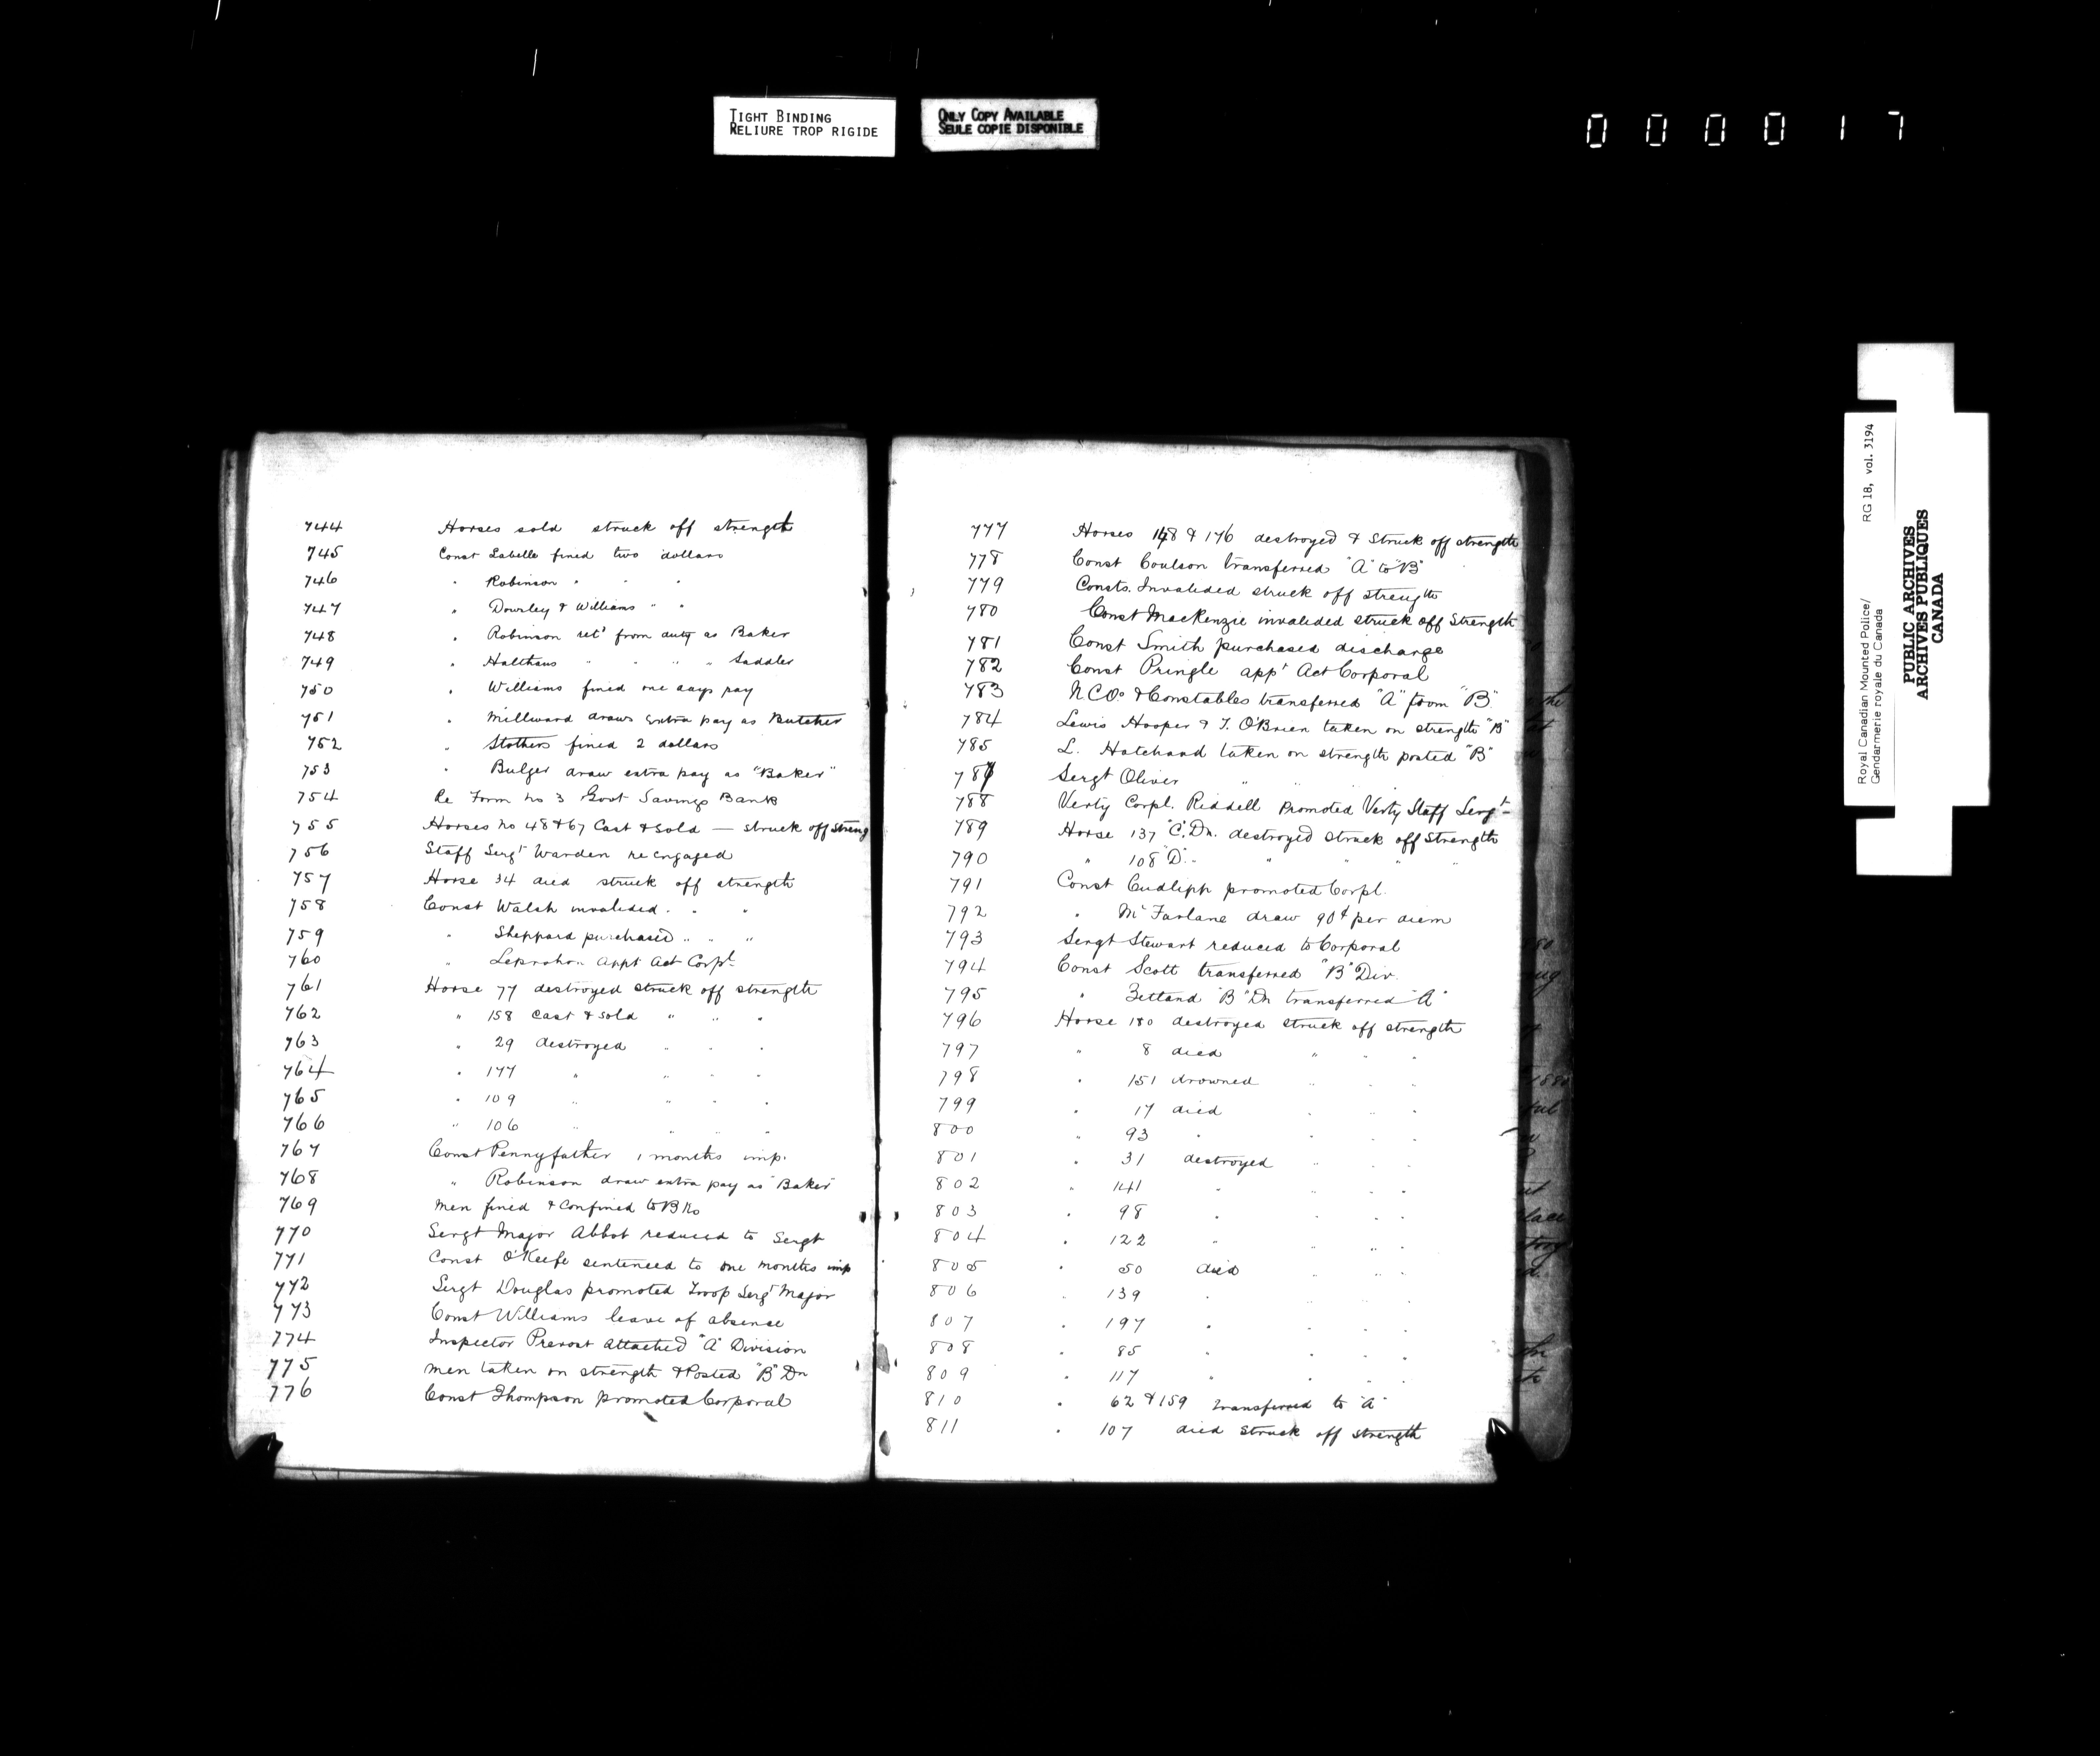 TIGHT BINDING
RELIURE TROP RIGIDE
ONLY COPY AVAILABLE
SEULE COPIE DISPONIBLE
000017
744 Horses sold struck off strength
745 Const Labelle fined two dollars
746 " Robinson " " "
747 " Dowsley & Williams " "
748 " Robinson ret'd from duty as Baker
749 " Halthaus " " " " Saddler
750 " Williams fined one days pay
751 " Millward draws extra pay as Butcher
752 " Stothers fined 2 dollars
753 " Bulger draw extra pay as "Baker"
754 Re Form No 3 Govt Savings Bank
755 Horses No 48 & 67 Cast & Sold — struck off streng
756 Staff Sergt Warden re engaged
757 Horse 34 died struck off strength
758 Const Walsh invalided " " "
759 " Sheppard purchased " " "
760 " Leprohon Appt Act Corpl
761 Horse 77 destroyed struck off strength
762 " 158 Cast & Sold " " "
763 " 29 destroyed " " "
764 " 177 " " " "
765 " 109 " " " "
766 " 106 " " " "
767 Const Pennyfather 1 months imp.
768 " Robinson draw extra pay as "Baker"
769 Men fined & Confined to B Ks
770 Sergt Major Abbot reduced to Sergt
771 Const O'Keefe sentenced to one months imp
772 Sergt Douglas promoted Troop Sergt Major
773 Const Williams leave of absence
774 Inspector Prevost attached "A" Division
775 Men taken on strength & Posted "B" Dn
776 Const Thompson promoted Corporal
777 Horses 148 & 176 destroyed & Struck off strength
778 Const Coulson transferred "A" to "B"
779 Consts. Invalided struck off strength
780 Const MacKenzie invalided struck off Strength
781 Const Smith purchased discharge
782 Const Pringle appt Act Corporal
783 N.C.Os & Constables transferred "A" from "B"
784 Lewis Hooper & T. O'Brien taken on strength "B"
785 L. Hatchard taken on strength posted "B"
787 Sergt Oliver " "
788 Verty Corpl. Riddell Promoted Verty Staff Sergt-
789 Horse 137 "C". Dn. destroyed struck off Strength
790 " 108 "D" - " " " "
791 Const Cudlipp promoted Corpl.
792 " McFarlane draw 90¢ per diem
793 Sergt Stewart reduced to Corporal
794 Const Scott transferred "B" Div.
795 " Zetland "B" Dn transferred "A"
796 Horse 180 destroyed struck off strength
797 " 8 died " " "
798 " 151 drowned " " "
799 " 17 died " " "
800 " 93 " " " "
801 " 31 destroyed " " "
802 " 141 " " " "
803 " 98 " " " "
804 " 122 " " " "
805 " 50 died " " "
806 " 139 " " " "
807 " 197 " " " "
808 " 85 " " " "
809 " 117 " " " "
810 " 62 & 159 transferred to "A"
811 " 107 died struck off strength
Royal Canadian Mounted Police/
Gendarmerie royale du Canada
RG 18, vol. 3194
PUBLIC ARCHIVES
ARCHIVES PUBLIQUES
CANADA